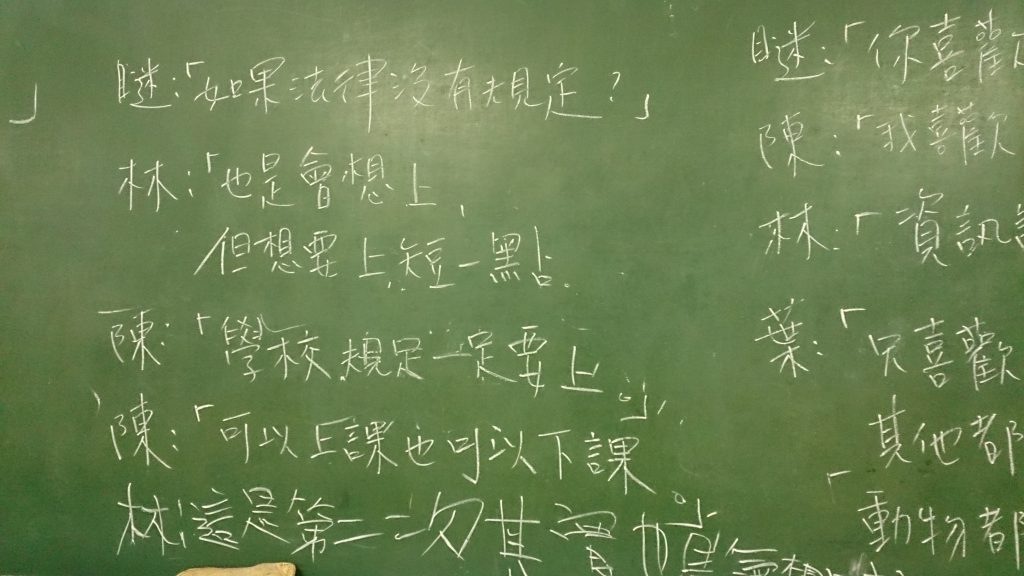 」
瞇：「如果法律沒有規定？」
林：「也是會想上，
但想要上短一點。
陳：「學校規定一定要上。」
陳：「可以上課也可以下課。」
林：這是第二次其實
瞇：「你喜歡
陳：「我喜歡
林：「資訊
葉：「只喜歡
其他都
「動物都